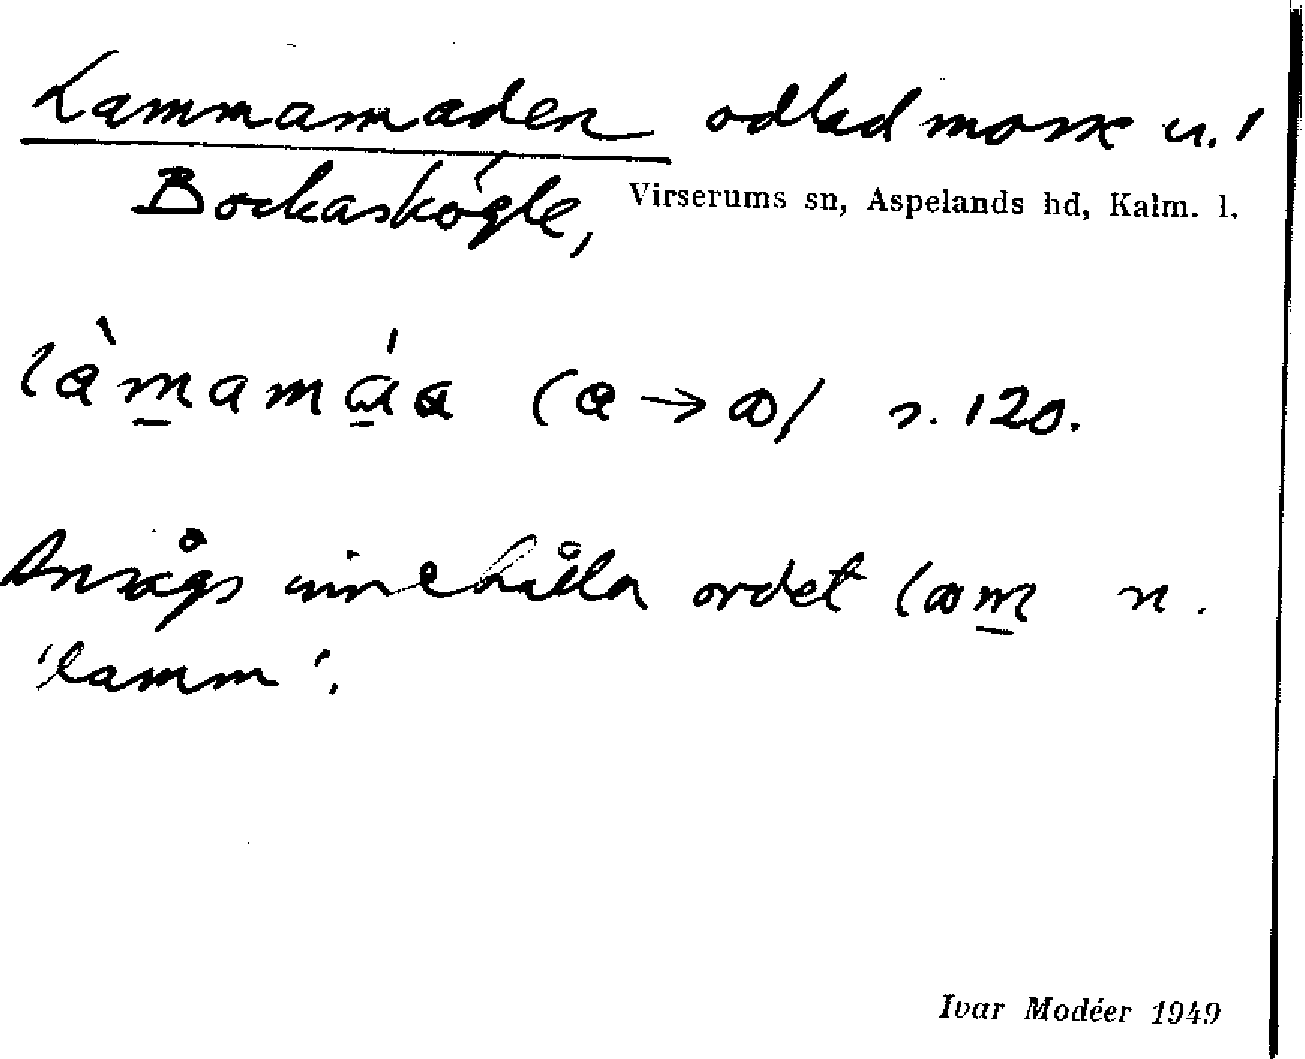 Lammamaden odlad mosse u. f
Bockaskögle, Virserums sn, Aspelands hd, Kalm. l.
làmamáa (a → ɷ) s. 120.
Ansågs innehålla ordet lam n.
'lamm'.
Ivar Modéer 1949